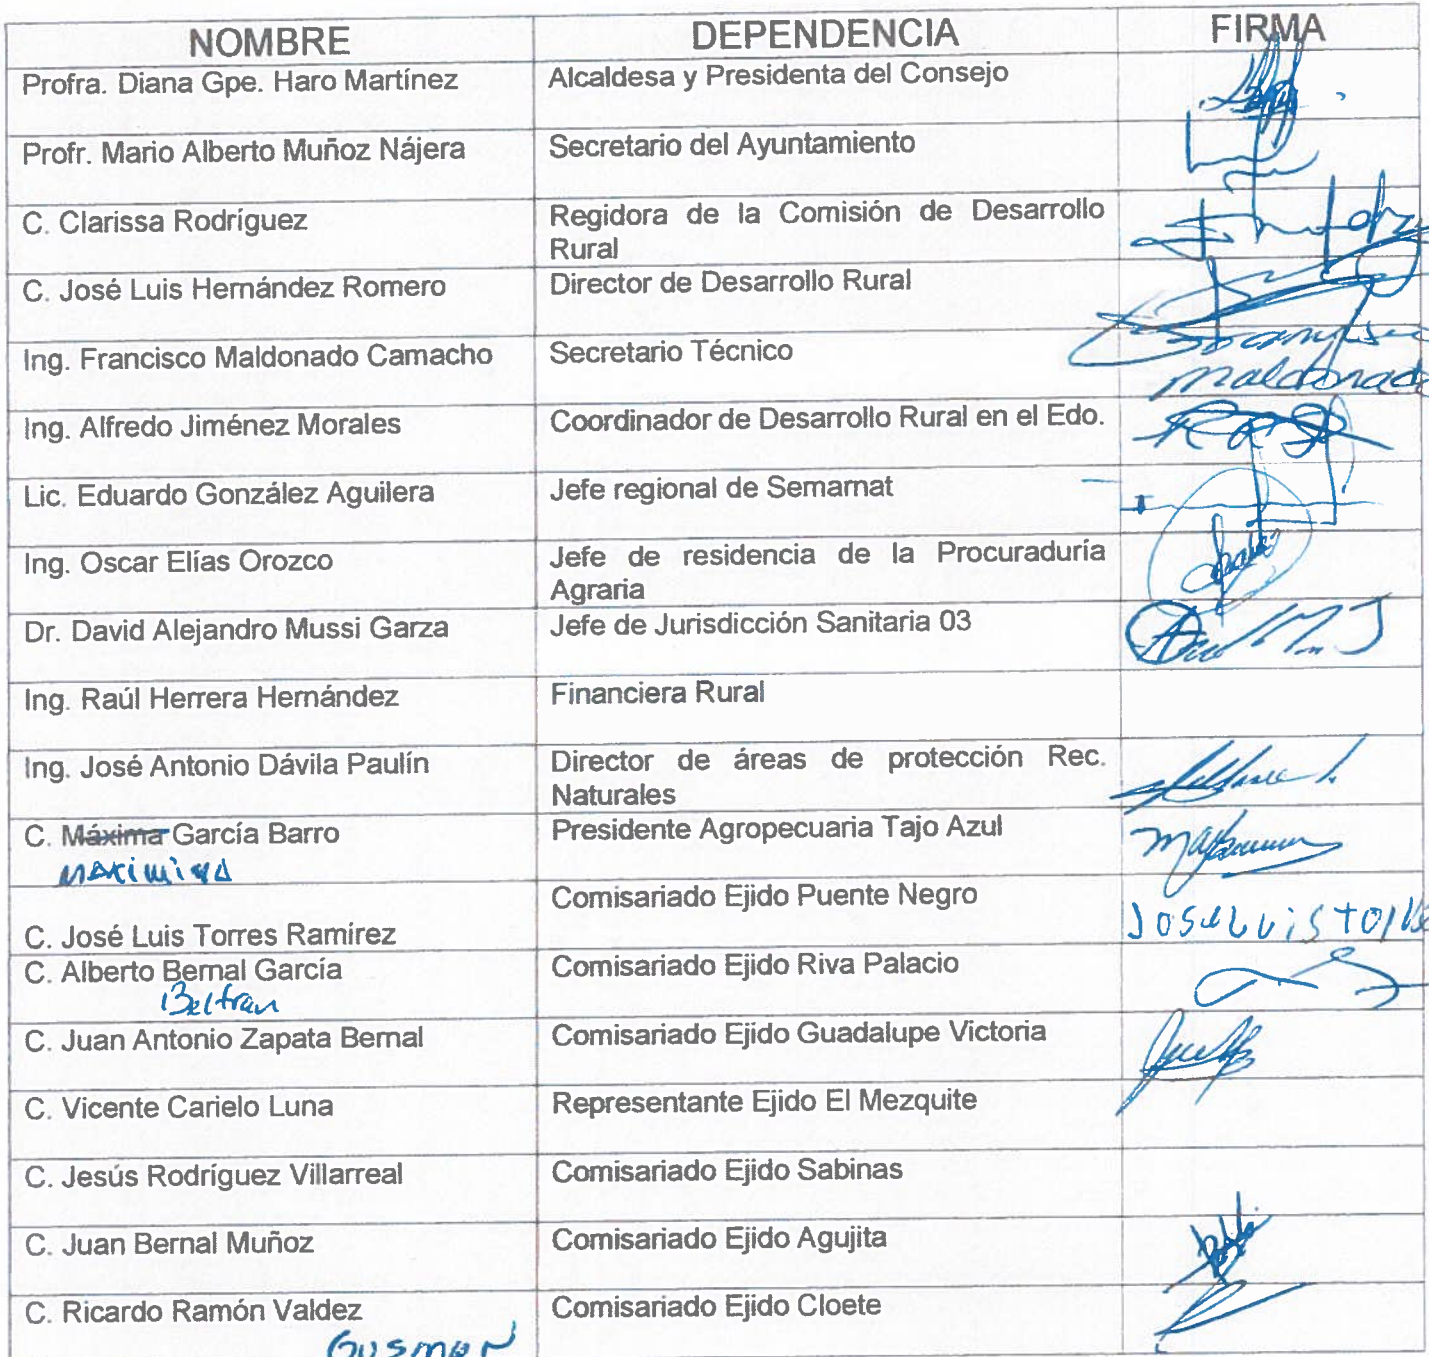 NOMBRE DEPENDENCIA FIRMA
Profra. Diana Gpe. Haro Martínez Alcaldesa y Presidenta del Consejo
Profr. Mario Alberto Muñoz Nájera Secretario del Ayuntamiento
C. Clarissa Rodríguez Regidora de la Comisión de Desarrollo
Rural
C. José Luis Hernández Romero Director de Desarrollo Rural
Ing. Francisco Maldonado Camacho Secretario Técnico
maldonado
Ing. Alfredo Jiménez Morales Coordinador de Desarrollo Rural en el Edo.
Lic. Eduardo González Aguilera Jefe regional de Semarnat
Ing. Oscar Elías Orozco Jefe de residencia de la Procuraduría
Agraria
Dr. David Alejandro Mussi Garza Jefe de Jurisdicción Sanitaria 03
Ing. Raúl Herrera Hernández Financiera Rural
Ing. José Antonio Dávila Paulín Director de áreas de protección Rec.
Naturales
C. Máxima García Barro Presidente Agropecuaria Tajo Azul
Comisariado Ejido Puente Negro
C. José Luis Torres Ramírez
C. Alberto Bernal García Comisariado Ejido Riva Palacio
Beltran
C. Juan Antonio Zapata Bernal Comisariado Ejido Guadalupe Victoria
C. Vicente Carielo Luna Representante Ejido El Mezquite
C. Jesús Rodríguez Villarreal Comisariado Ejido Sabinas
C. Juan Bernal Muñoz Comisariado Ejido Agujita
C. Ricardo Ramón Valdez Comisariado Ejido Cloete
Gusman